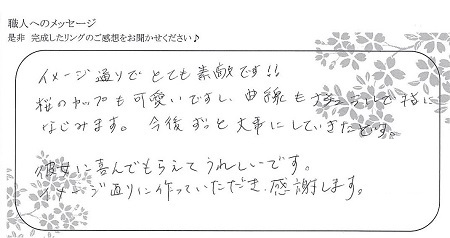 職人へのメッセージ
是非 完成したリングのご感想をお聞かせください♪
イメージ通りでとても素敵です!!
桜のカップも可愛いですし、曲線もナチュラルで手に
なじみます。今後ずっと大事にしていきたいです。
彼女に喜んでもらえてうれしいです。
イメージ通りに作っていただき感謝します。